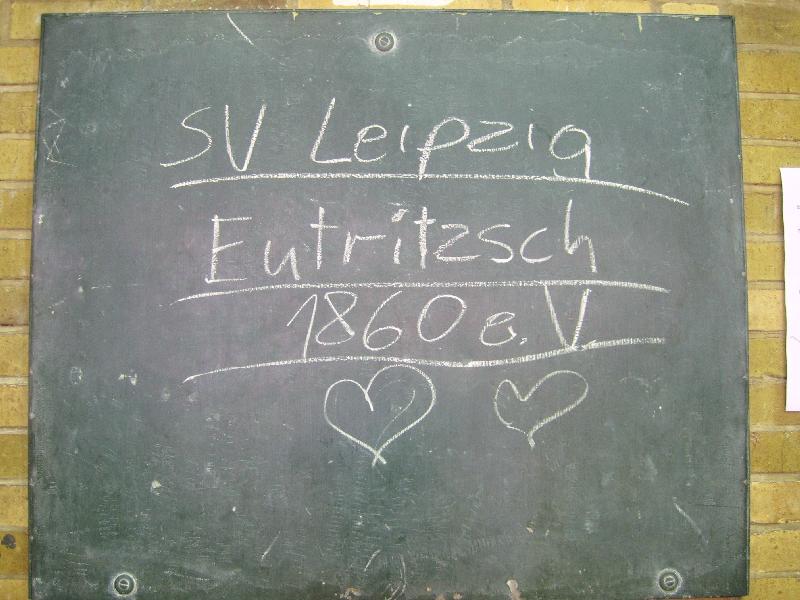 SV Leipzig
Eutritzsch
1860 e.V.